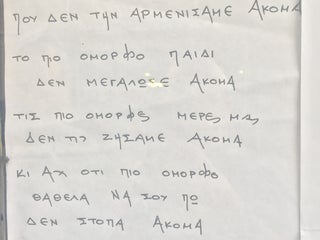 ΠΟΥ ΔΕΝ ΤΗΝ ΑΡΜΕΝΙΣΑΜΕ ΑΚΟΜΑ
ΤΟ ΠΙΟ ΟΜΟΡΦΟ ΠΑΙΔΙ
ΔΕΝ ΜΕΓΑΛΩΣΕ ΑΚΟΜΑ
ΤΙΣ ΠΙΟ ΟΜΟΡΦΕΣ ΜΕΡΕΣ ΜΑΣ
ΔΕΝ ΤΙΣ ΖΗΣΑΜΕ ΑΚΟΜΑ
ΚΙ ΑΧ ΟΤΙ ΠΙΟ ΟΜΟΡΦΟ
ΘΑΘΕΛΑ ΝΑ ΣΟΥ ΠΩ
ΔΕΝ ΣΤΟΠΑ ΑΚΟΜΑ